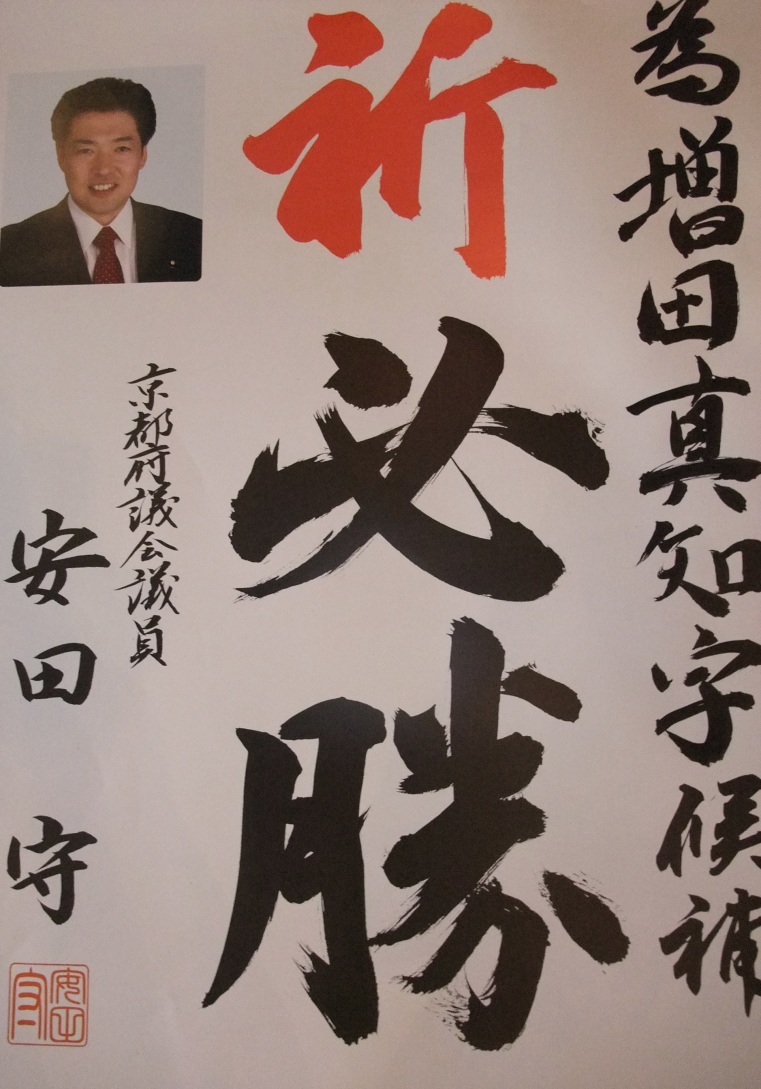 為増田真知字候補
祈必勝
京都府議会議員
安田守
安田守